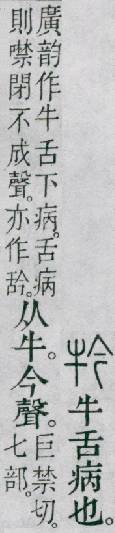 牛舌病也。
廣韵作牛舌下病。舌病
則噤閉不成聲。亦作䑤。
从牛。今聲。
巨禁切。
七部。